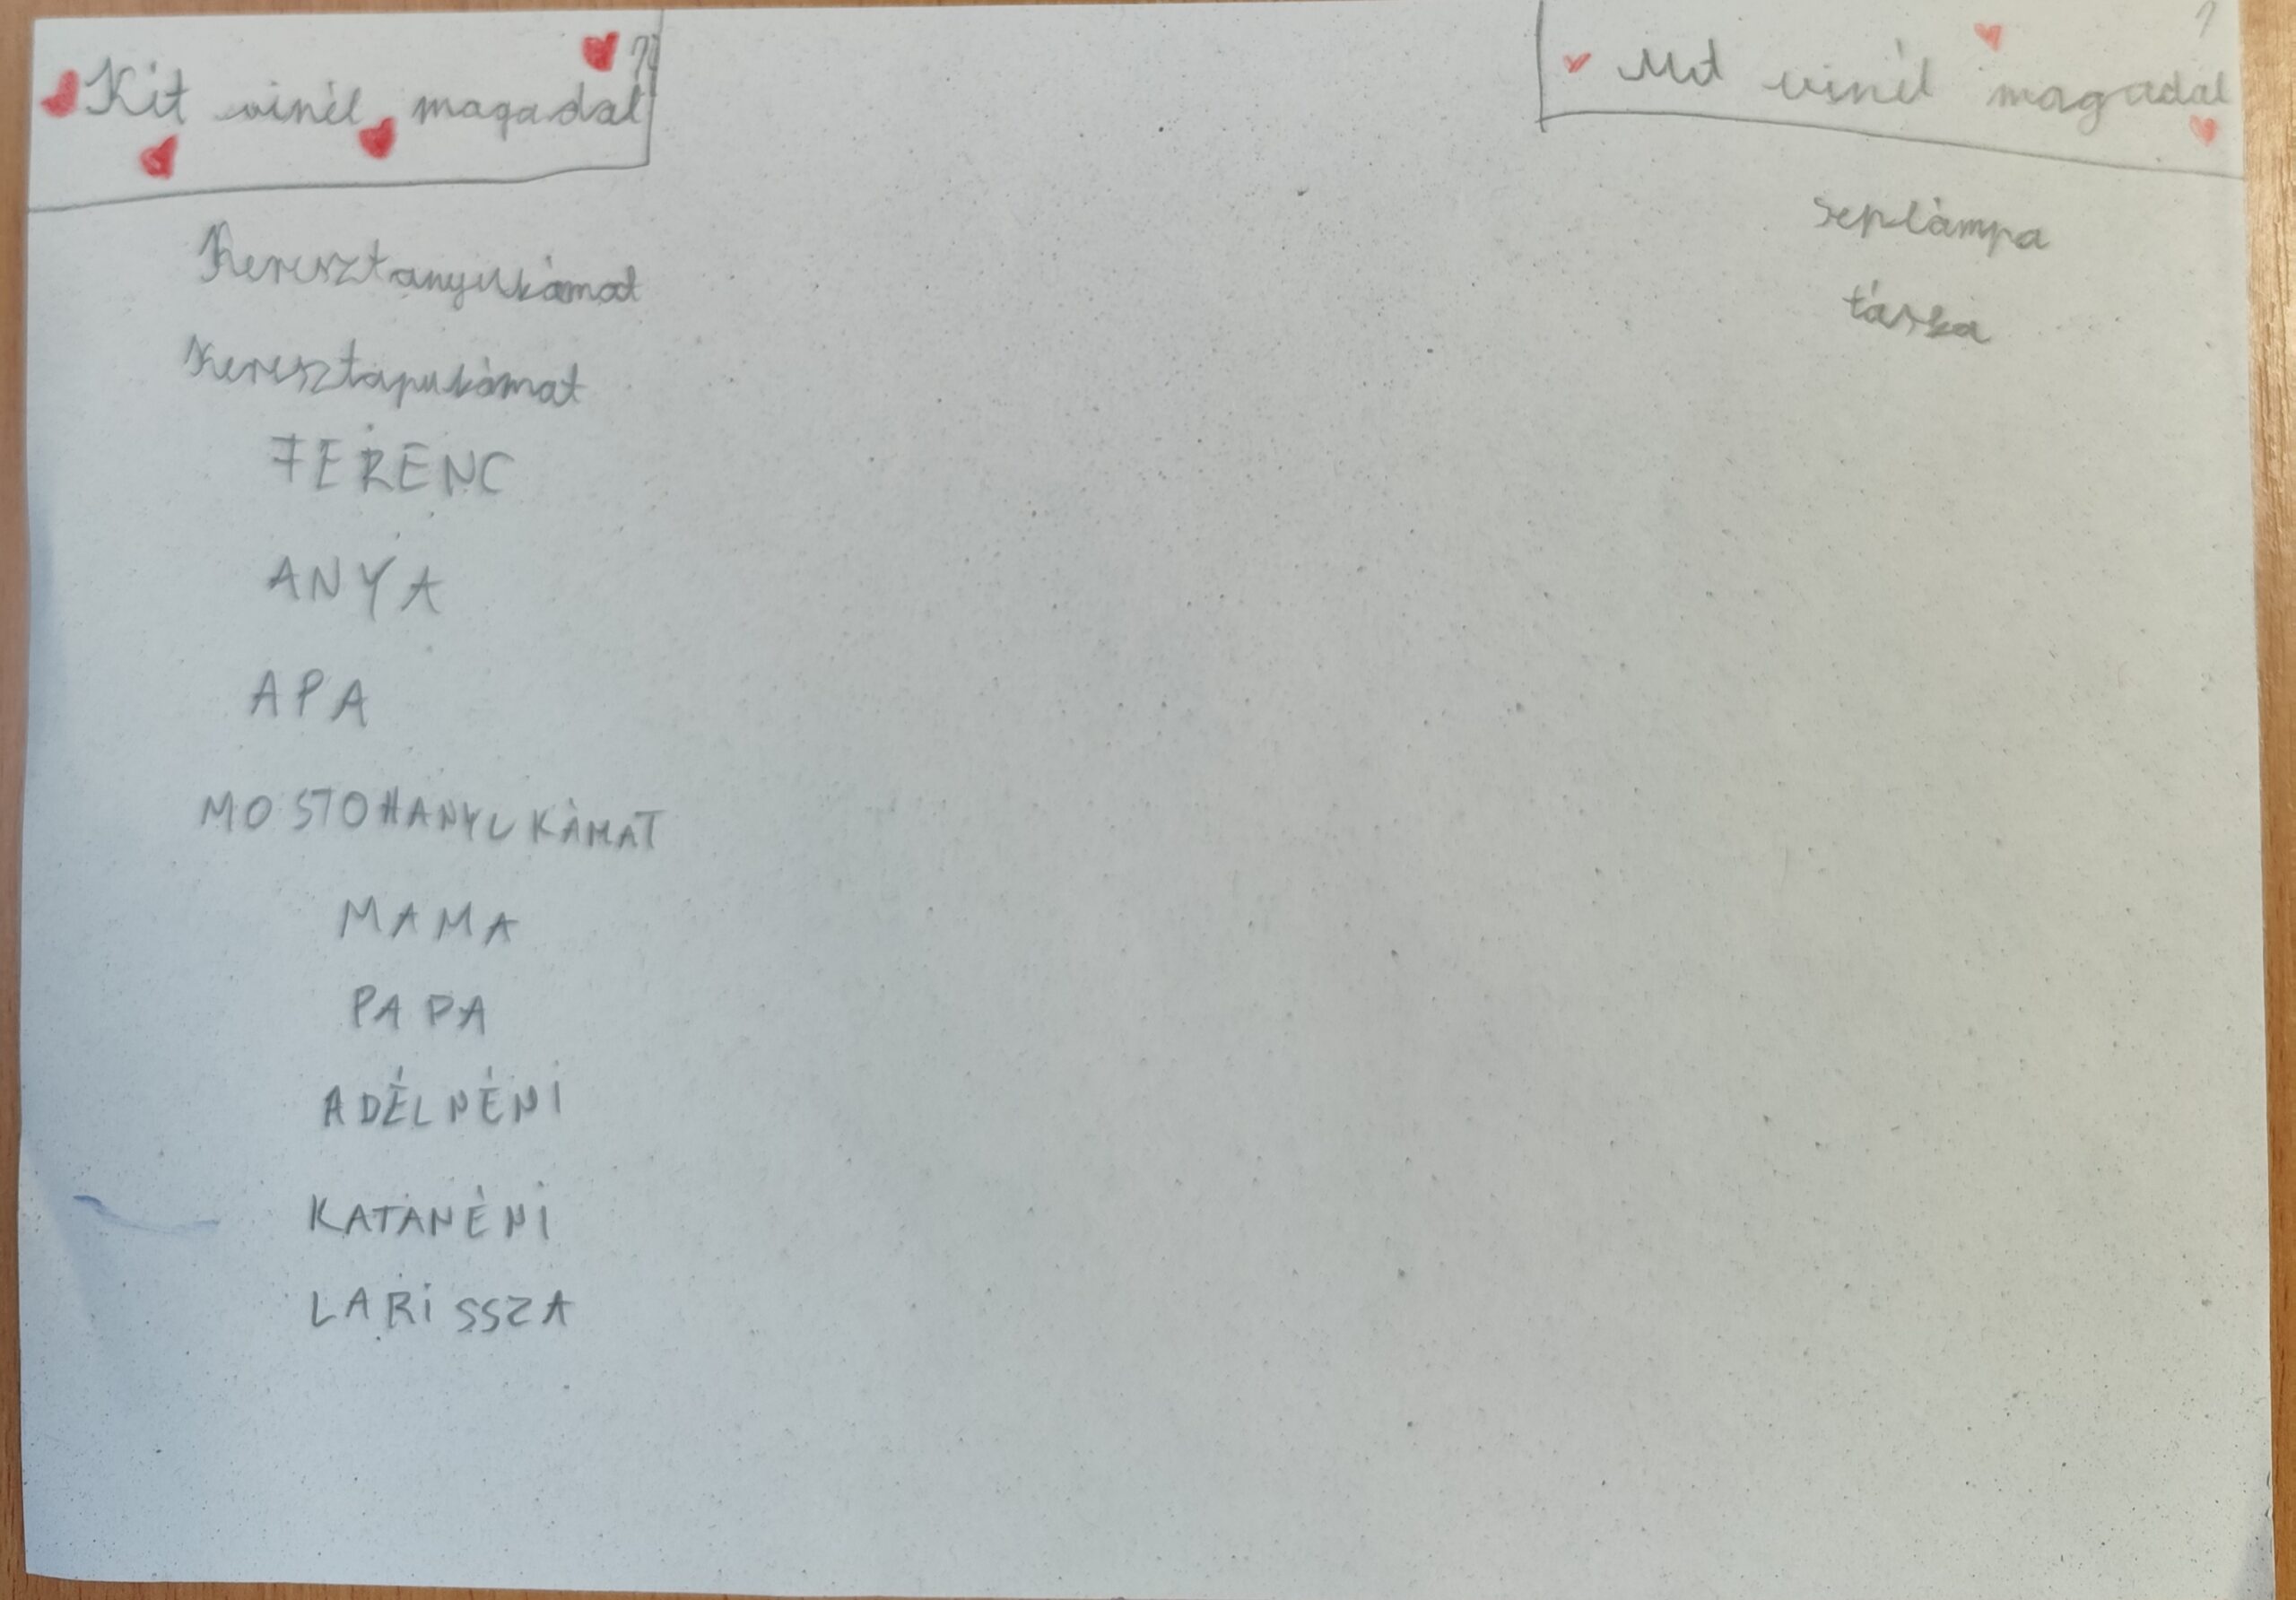 Kit vinél magadal?
Keresztanyukámat
Keresztapukámat
FERENC
ANYA
APA
MOSTOHANYUKÁMAT
MAMA
PAPA
ADÉLNÉNI
KATANÉNI
LARISSZA
Mit vinél magadal?
seplámpa
táska